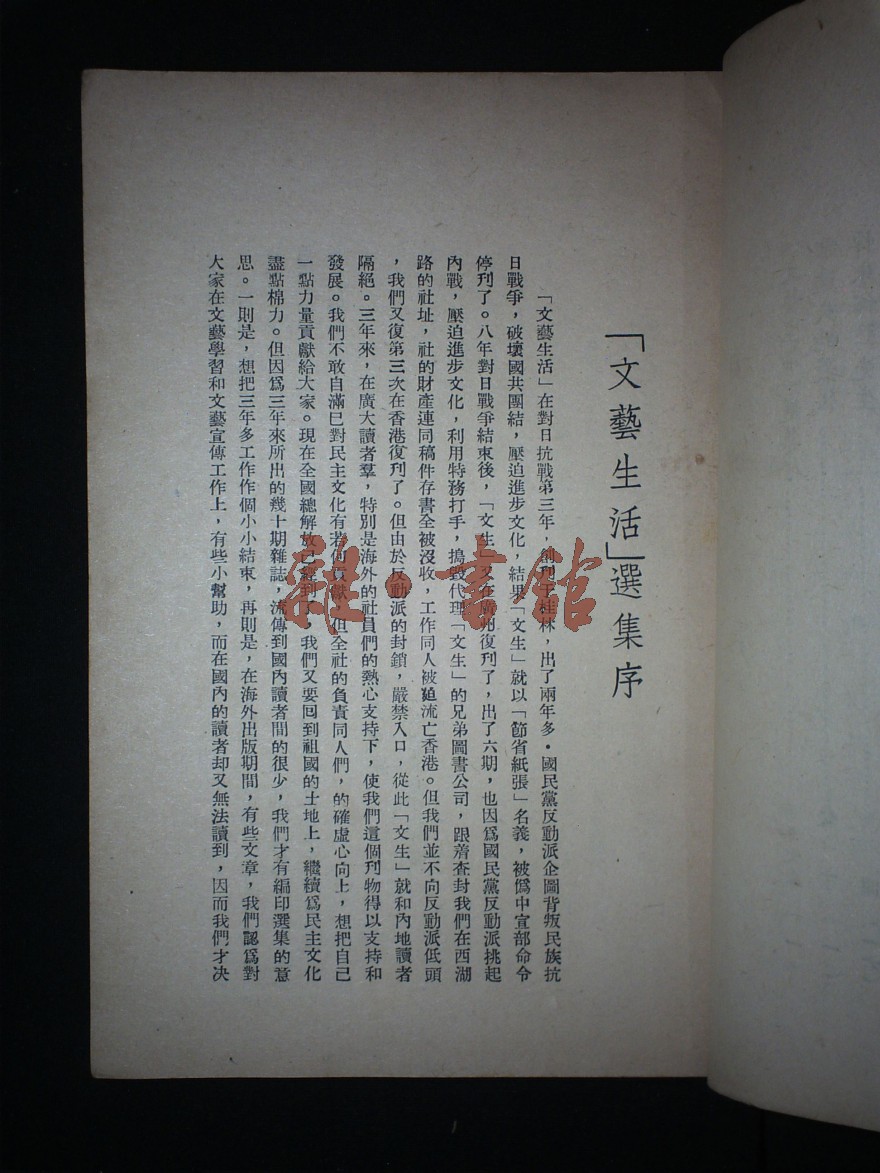 「文藝生活」選集序
「文藝生活」在對日抗戰第三年，創刊于桂林，出了兩年多・國民黨反動派企圖背叛民族抗
日戰爭，破壞國共團結，壓迫進步文化，結果「文生」就以「節省紙張」名義，被僞中宣部命令
停刊了。八年對日戰爭結束後，「文生」又在廣州復刊了，出了六期，也因爲國民黨反動派挑起
內戰，壓迫進步文化，利用特務打手，搗毀代理「文生」的兄弟圖書公司，跟着查封我們在西湖
路的社址，社的財產連同稿件存書全被沒收，工作同人被廹流亡香港。但我們並不向反動派低頭
，我們又復第三次在香港復刊了。但由於反動派的封鎖，嚴禁入口，從此「文生」就和內地讀者
隔絕。三年來，在廣大讀者羣，特別是海外的社員們的熱心支持下，使我們這個刊物得以支持和
發展。我們不敢自滿已對民主文化有若何貢獻，但全社的負責同人們，的確虛心向上，想把自己
一點力量貢獻給大家。現在全國總解放已經到了，我們又要回到祖國的土地上，繼續爲民主文化
盡點棉力。但因爲三年來所出的幾十期雜誌，流傳到國內讀者間的很少，我們才有編印選集的意
思。一則是，想把三年多工作作個小小結束，再則是，在海外出版期間，有些文章，我們認爲對
大家在文藝學習和文藝宣傳工作上，有些小幫助，而在國內的讀者却又無法讀到，因而我們才决
雜・書館